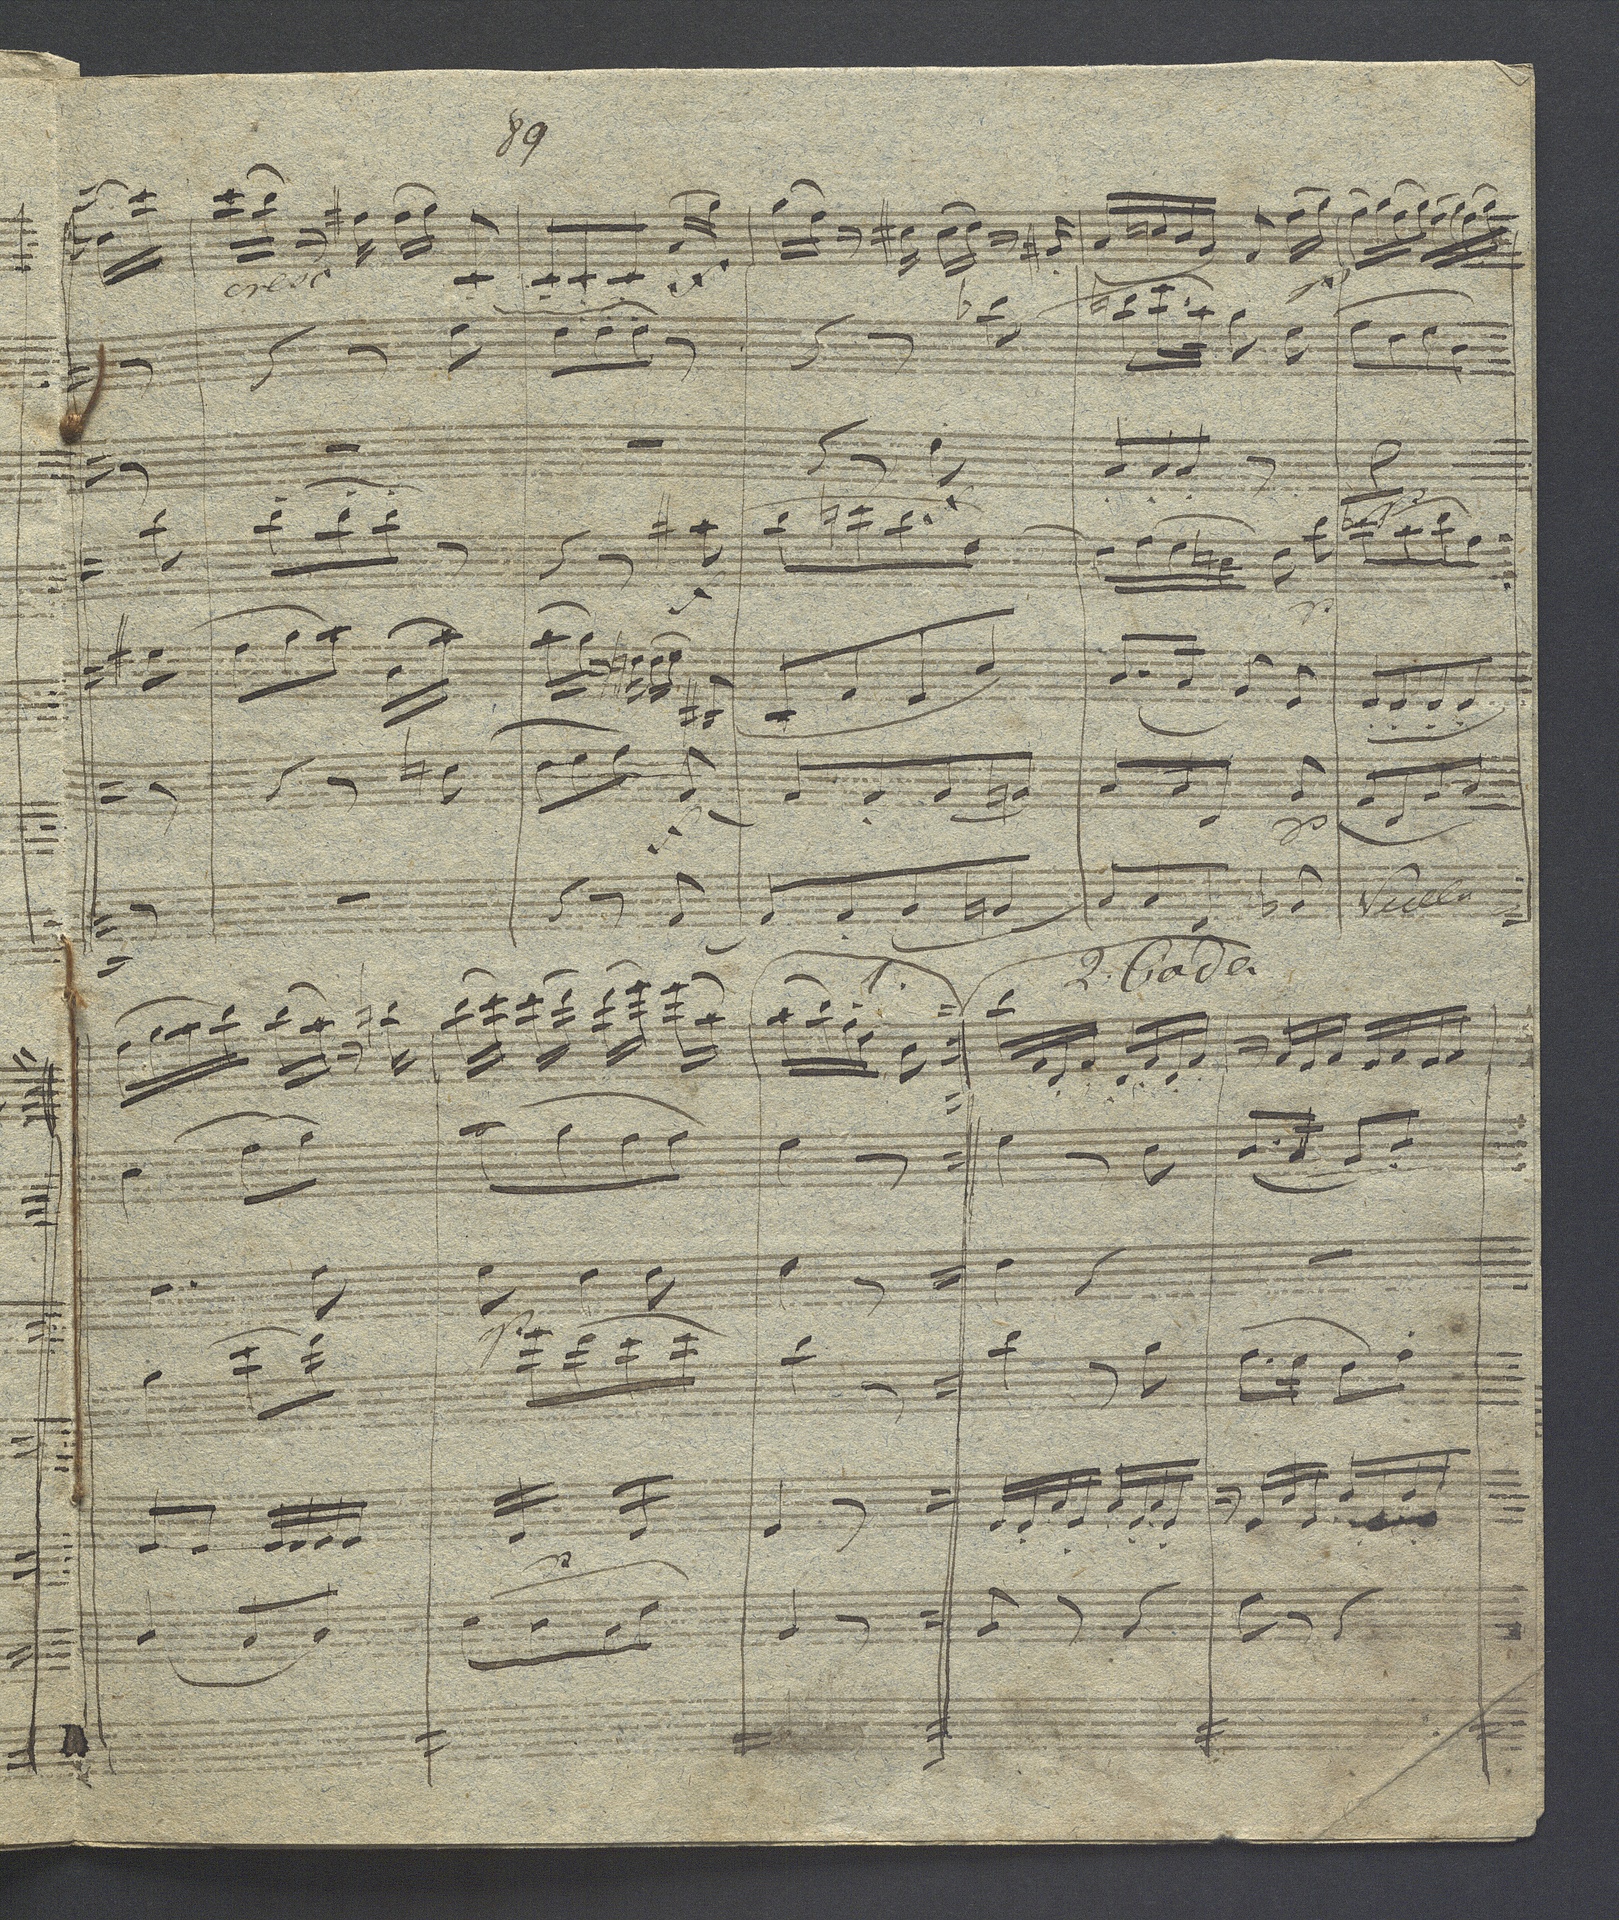 89
cresc
f
p
p
f
p
f
p
Vcello
1.
2. Coda
p
p